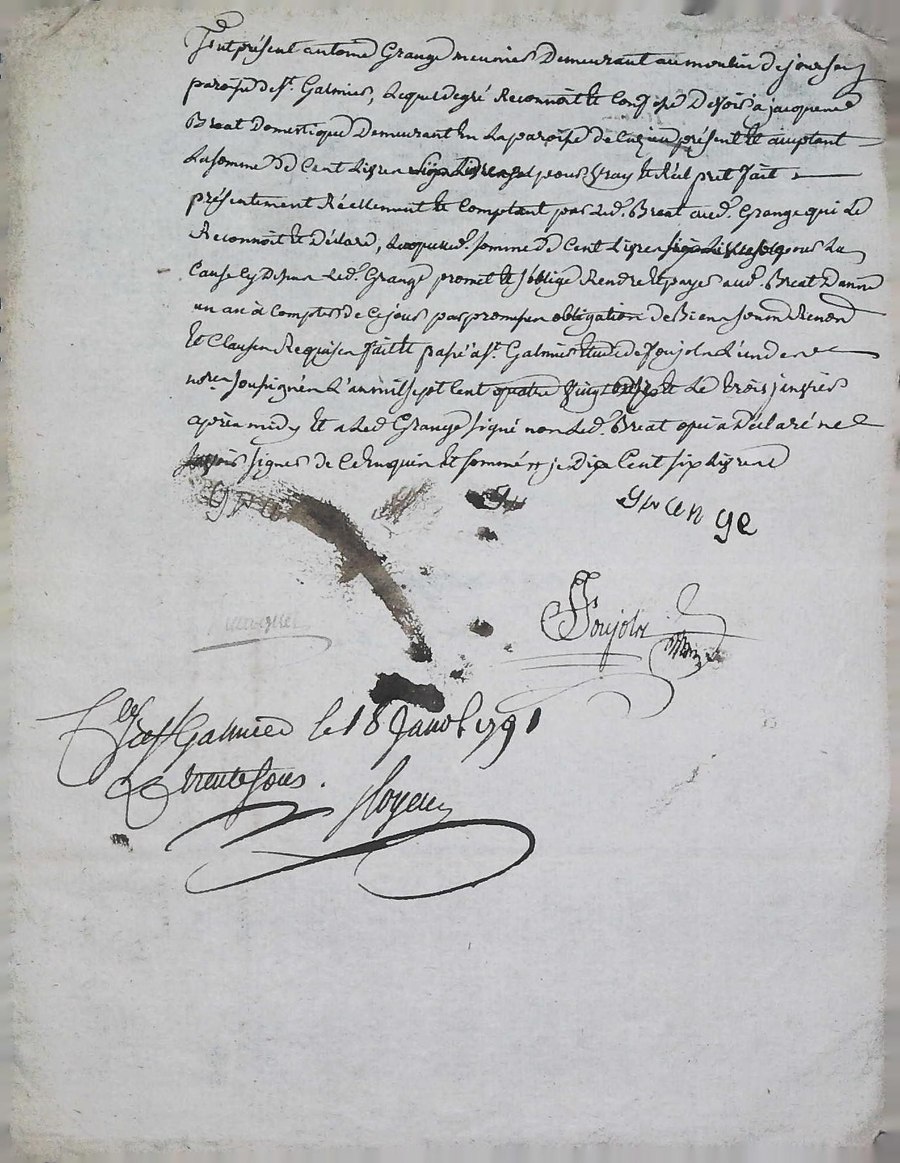 fut présent antoine Grange meunier Demeurant au moulin de
paroisse de St. Galmier, Lequel de gré Reconnoit et Confesse Devoir a jacqueme
Breat Domestique Demeurant En La paroisse de Cuzieu présent et aceptant
La somme de Cent Livres pour vray et Réel pret fait
présentement Réellement et Comptant par Led. Breat aud. Grange qui Le
Reconnoit et Déclare, Laquelle d. somme de Cent Livres pour La
Cause Cy Dessus Led. Grange promet et s'oblige Rendre et payer aud. Breat Dans
un an à Compter de Ce jour par promesse obligation de Biens soum. Renon
Et Clauses Requises fait et passé a St. Galmier Etude de Soujols L'un des
nores soussignés L'an mil sept Cent quatre vingt onze et Le trois janvier
après midy Et a Led Grange signé non Led. Breat qui a Déclaré ne
savoir signer de Ce Enquis Et sommé je Dis Cent six Livres
gra
grange
Soujols
Clé a St Galmier le 18 Janv. 1791
R trente sous.